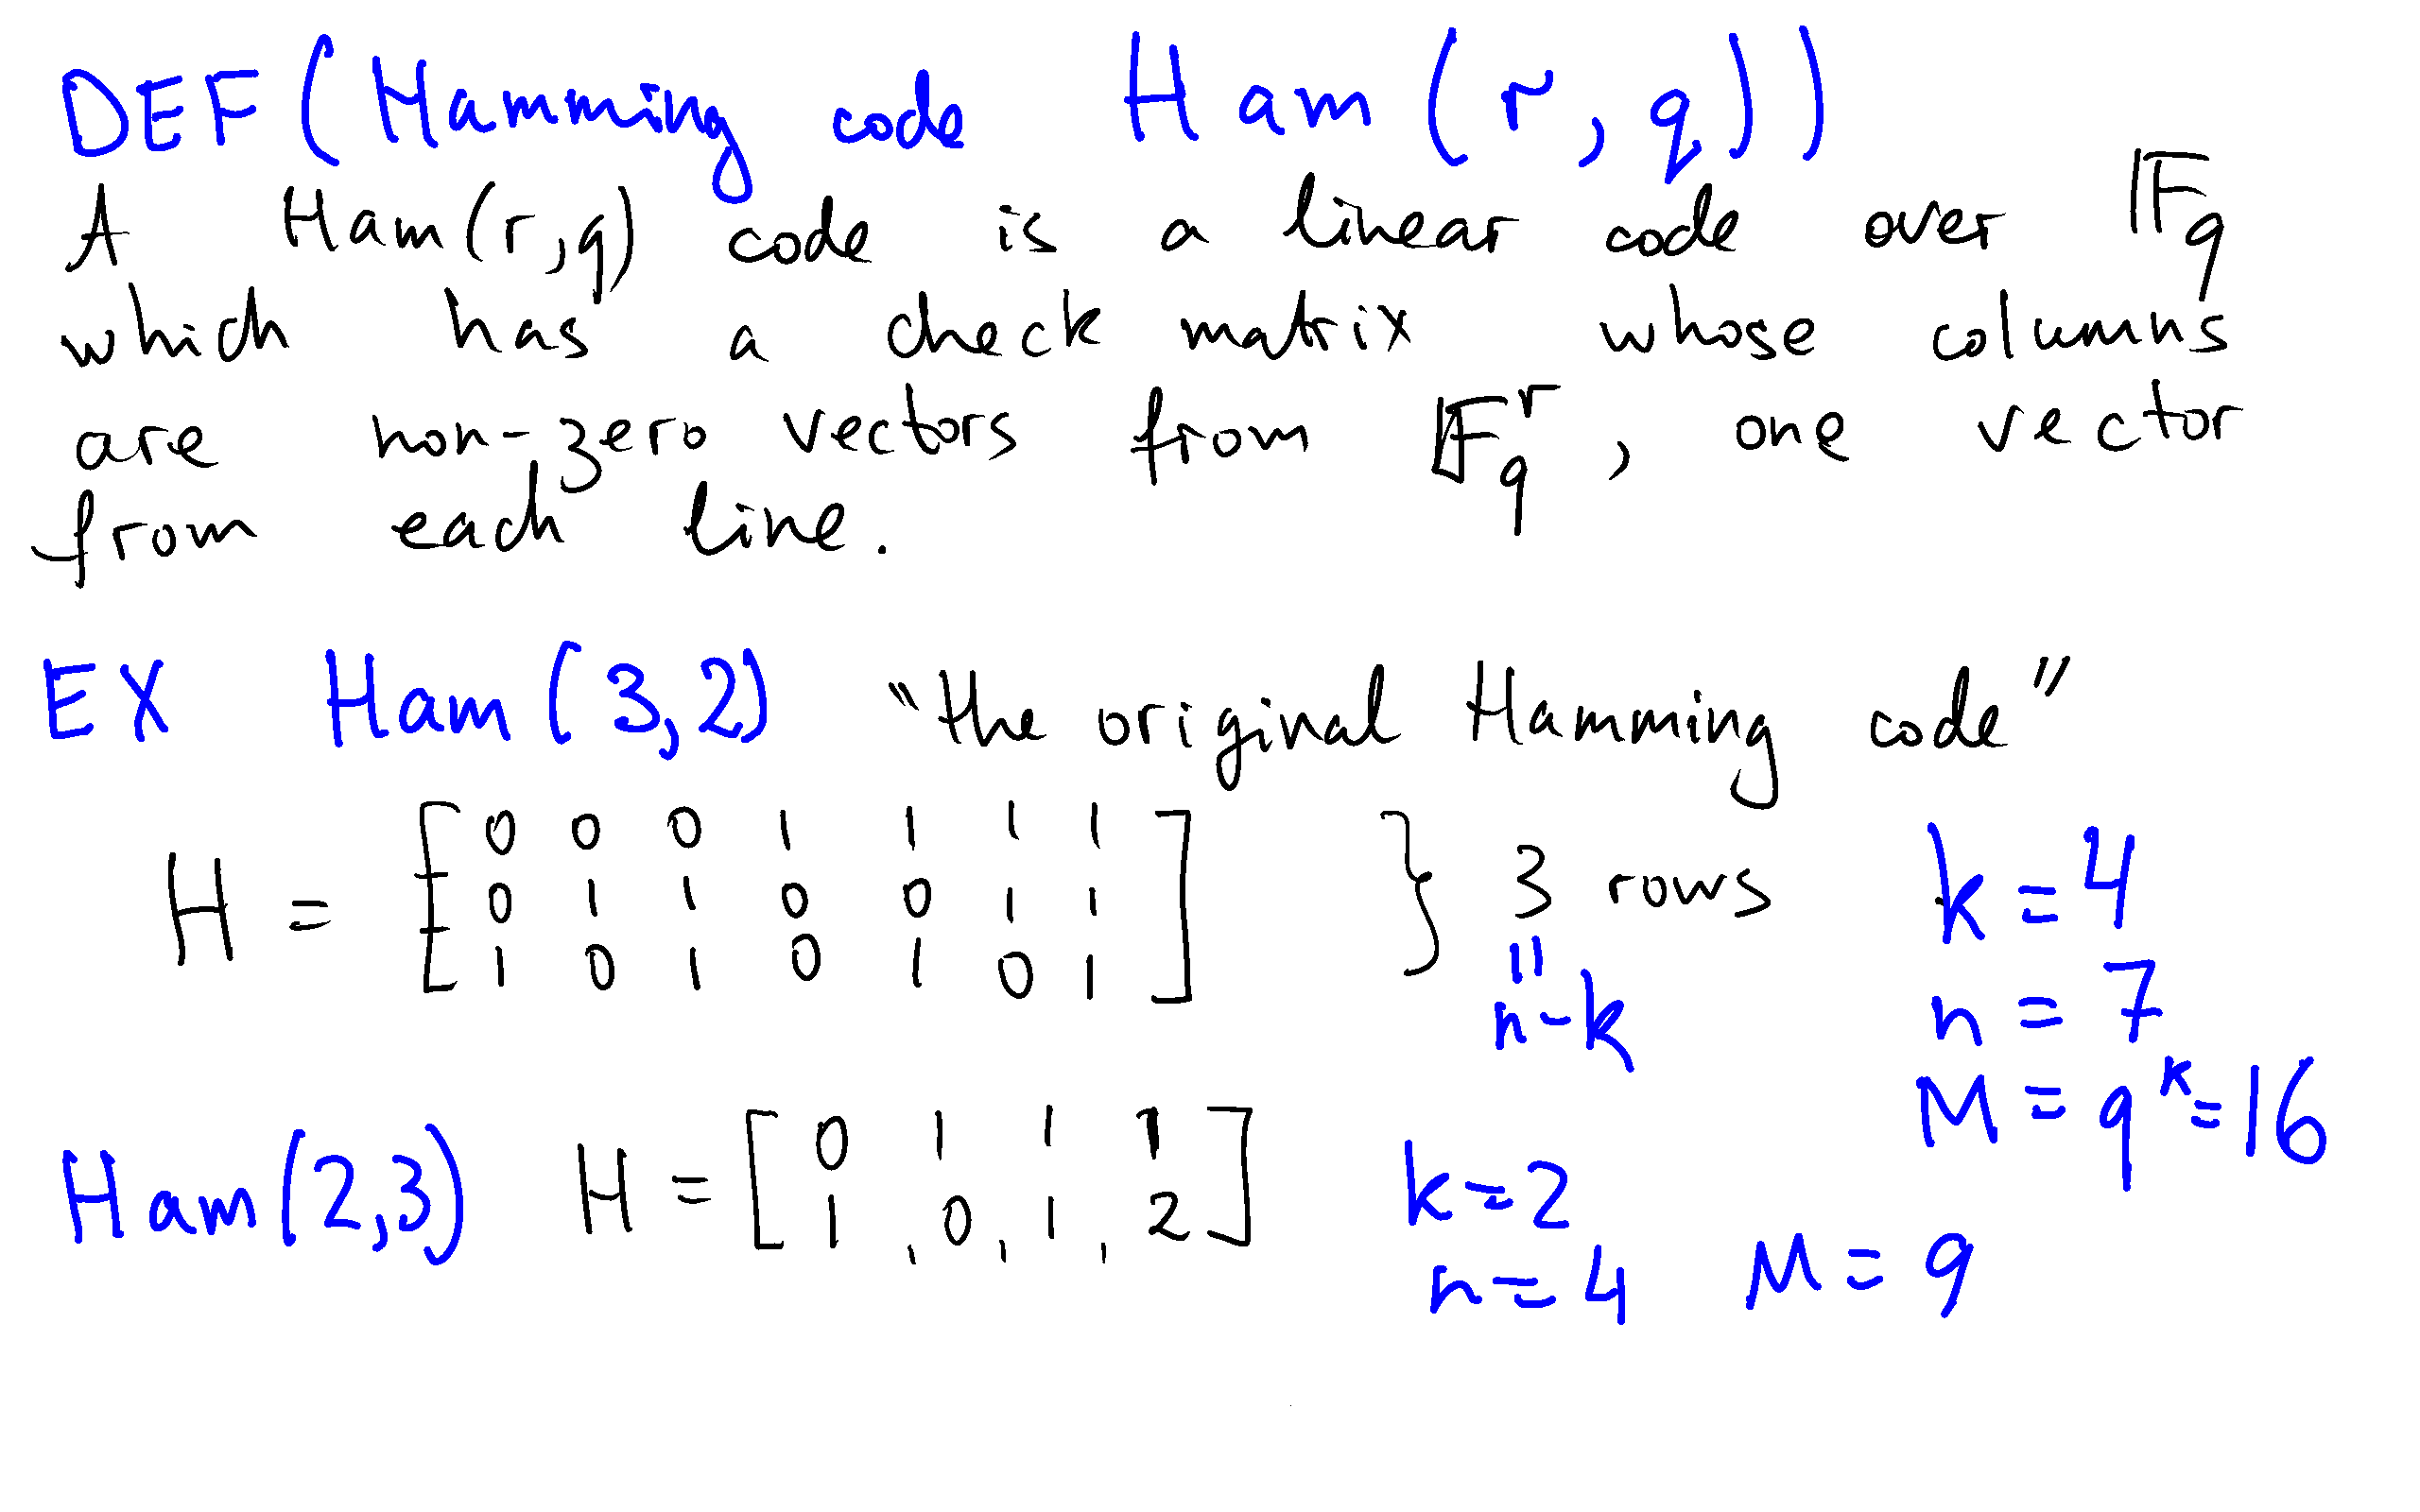 DEF (Hamming code Ham (r, q))
A Ham(r,q) code is a linear code over 𝔽q
which has a check matrix whose columns
are non-zero vectors from 𝔽q^r, one vector
from each line.
EX Ham (3,2) "the original Hamming code"
H = [0 0 0 1 1 1 1
0 1 1 0 0 1 1
1 0 1 0 1 0 1] } 3 rows
= n-k
k = 4
n = 7
M = q^k = 16
Ham(2,3) H = [0 1 1 1
1 , 0 , 1 , 2]
k = 2
n = 4 M = 9